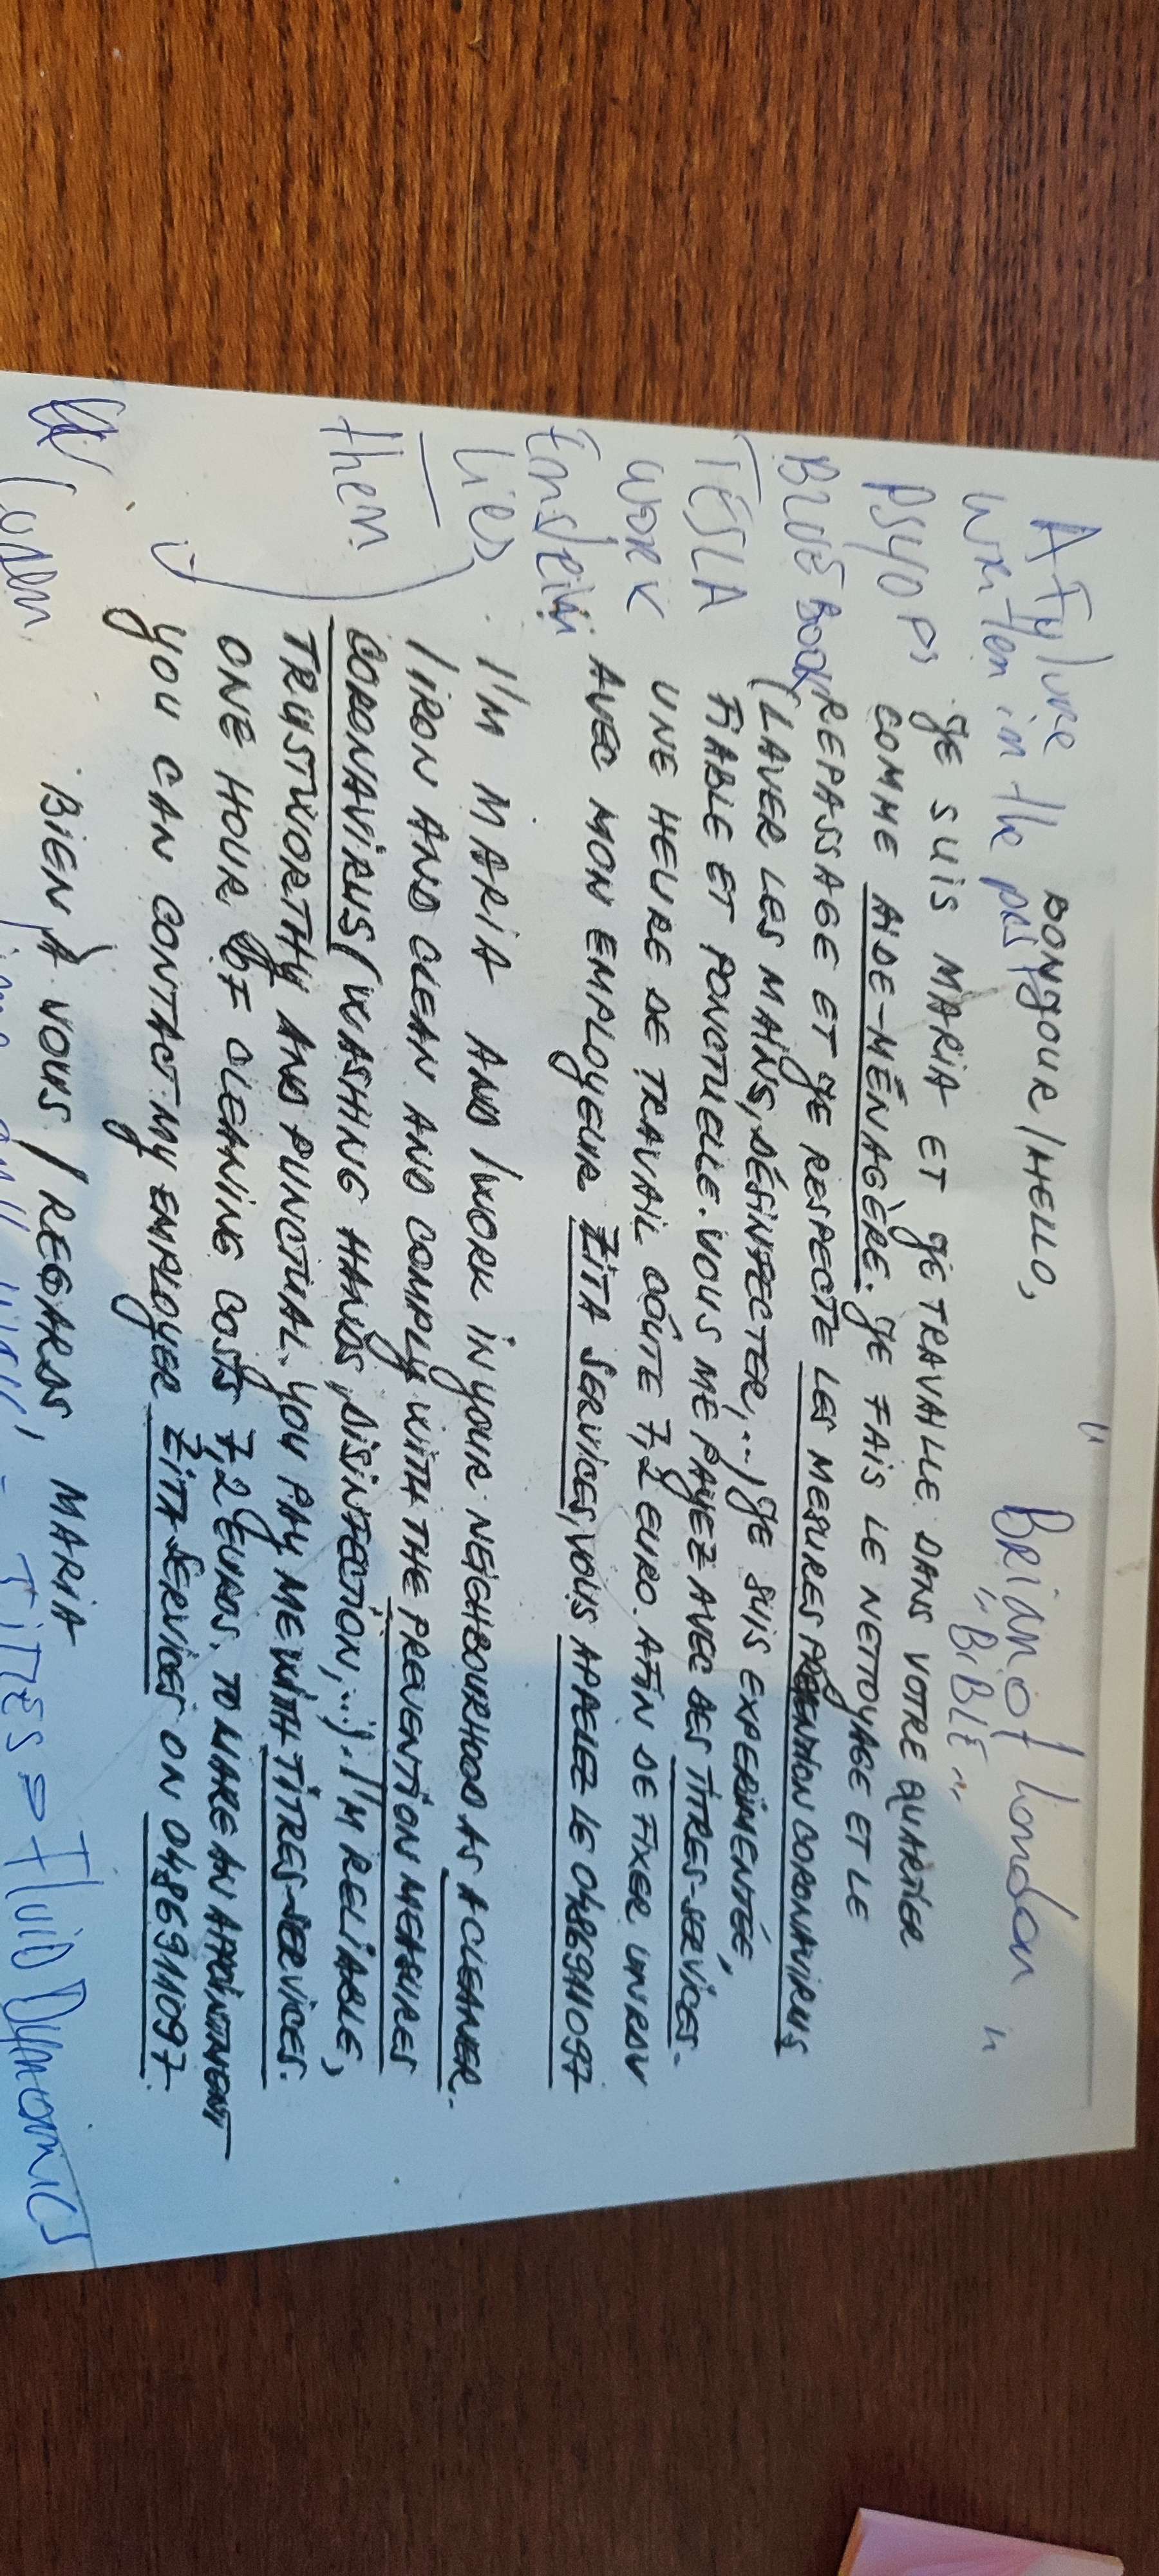 A Future
Written in the past
Brian of London
"BiBLE"
BONJOUR/HELLO,
PSYOPs
JE SUIS MARIA ET JE TRAVAILLE DANS VOTRE QUARTIER
COMME AIDE-MÉNAGÈRE. JE FAIS LE NETTOYAGE ET LE
BLUE BOOK
REPASSAGE ET JE RESPECTE LES MESURES PREVENTION CORONAVIRUS
(LAVER LES MAINS, DÉSINFECTER,...) JE SUIS EXPERIMENTÉE,
TESLA
FIABLE ET PONCTUELLE. VOUS ME PAYEZ AVEC DES TITRES-SERVICES.
WORK
UNE HEURE DE TRAVAIL COÛTE 7,2 EURO. AFIN DE FIXER UN RDV
AVEC MON EMPLOYEUR ZITA SERVICES, VOUS APPELEZ LE 0486911097
Einstein
Lies
I'M MARIA AND I WORK IN YOUR NEIGHBOURHOOD AS A CLEANER.
I IRON AND CLEAN AND COMPLY WITH THE PREVENTION MEASURES
then
CORONAVIRUS (WASHING HANDS, DISINFECTION,...). I'M RELIABLE,
TRUSTWORTHY AND PUNCTUAL. YOU PAY ME WITH TITRES-SERVICES.
ONE HOUR OF CLEANING COSTS 7,2 EUROS. TO MAKE AN APPOINTMENT
YOU CAN CONTACT MY EMPLOYER ZITA SERVICES ON 0486911097.
BIEN À VOUS / REGARDS, MARIA
TITES => FLUID DYNAMICS